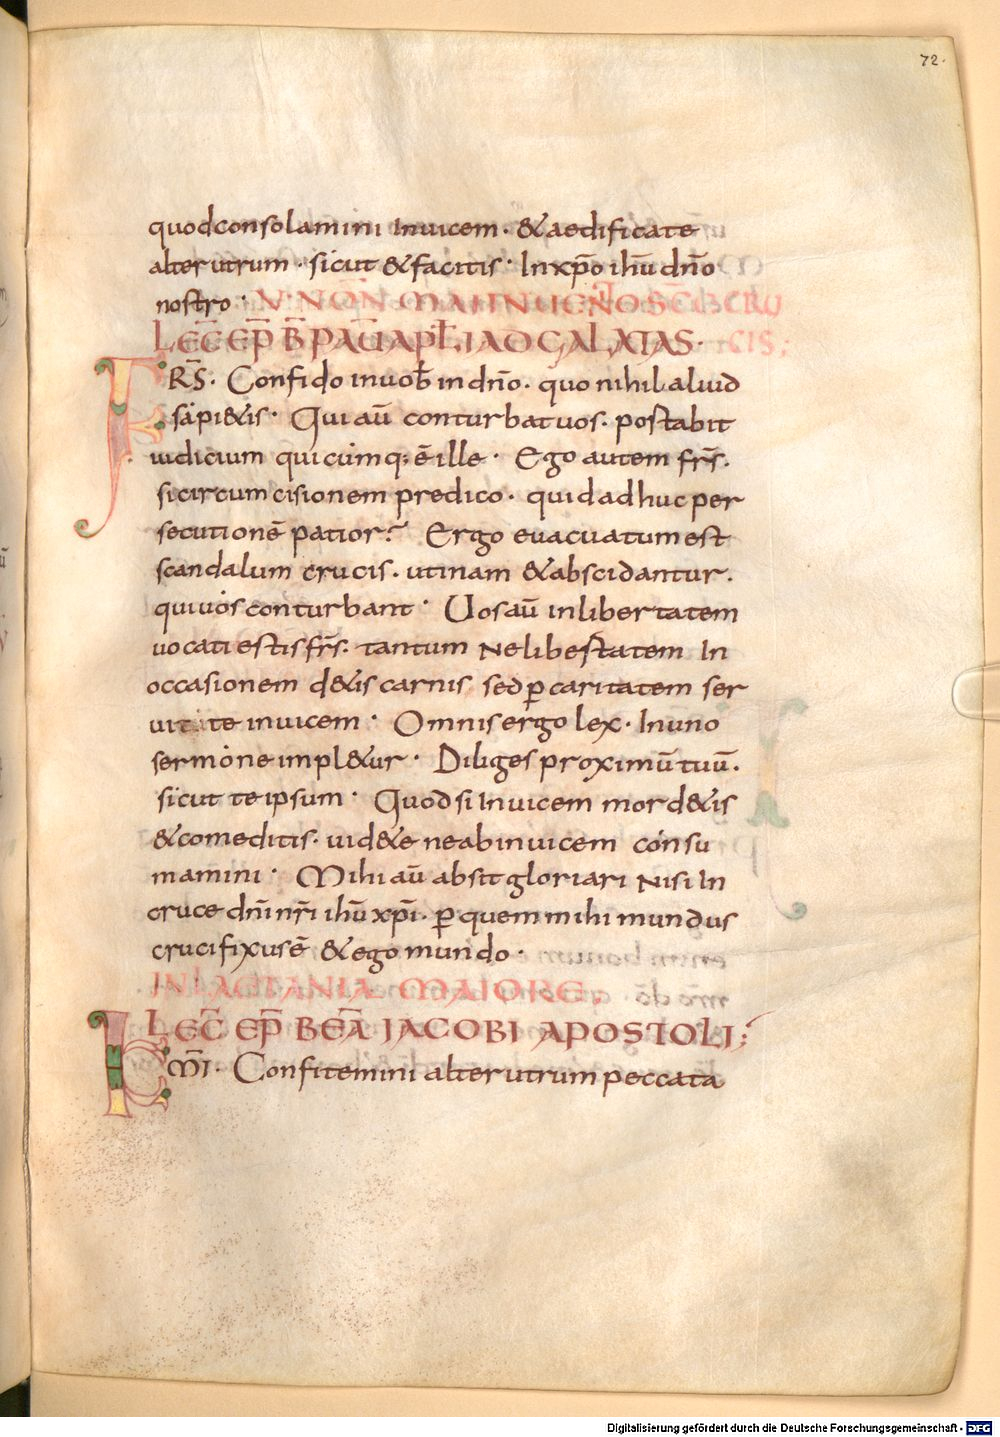 72.
quod consolamini Inuicem · &aedificate
alterutrum · sicut &facitis · In xp̄o ih̄u dn̄o
nostro · V · NŌN MAII INUEN̄ O SC̄E CRU
LEC̄ EP̄ B̄ PAŪ APƚI AD GALATAS · CIS;
FRS̄ · Confido in uob̄ in dn̄o · quo nihil aliud
sapi&is · Qui aū conturbat uos · postabit
iudicium quicumq; ē ille · Ego autem fr̄s ·
si circumcisionem predico · quid adhuc per
secutionē patior? Ergo euacuatum est
scandalum crucis · utinam &abscidantur ·
qui uos conturbant · Uos aū in libertatem
uocati estis fr̄s · tantum Ne libestatem In
occasionem d&is carnis sed p̱ caritatem ser
uitite inuicem · Omnis ergo lex · In uno
sermone impl&ur · Diliges proximū tuū ·
sicut te ipsum · Quod si Inuicem mord&is
&comeditis · uid&e ne ab inuicem consu
mamini · Mihi aū absit gloriari Nisi In
cruce dn̄i nr̄i ih̄u xp̄i · p̱ quem mihi mundus
crucifixus ē &ego mundo ·
IN LAETANIA MAIORE ·
LEC̄ EP̄ BEĀ IACOBI APOSTOLI;
KM̄I · Confitemini alterutrum peccata
Digitalisierung gefördert durch die Deutsche Forschungsgemeinschaft - DFG